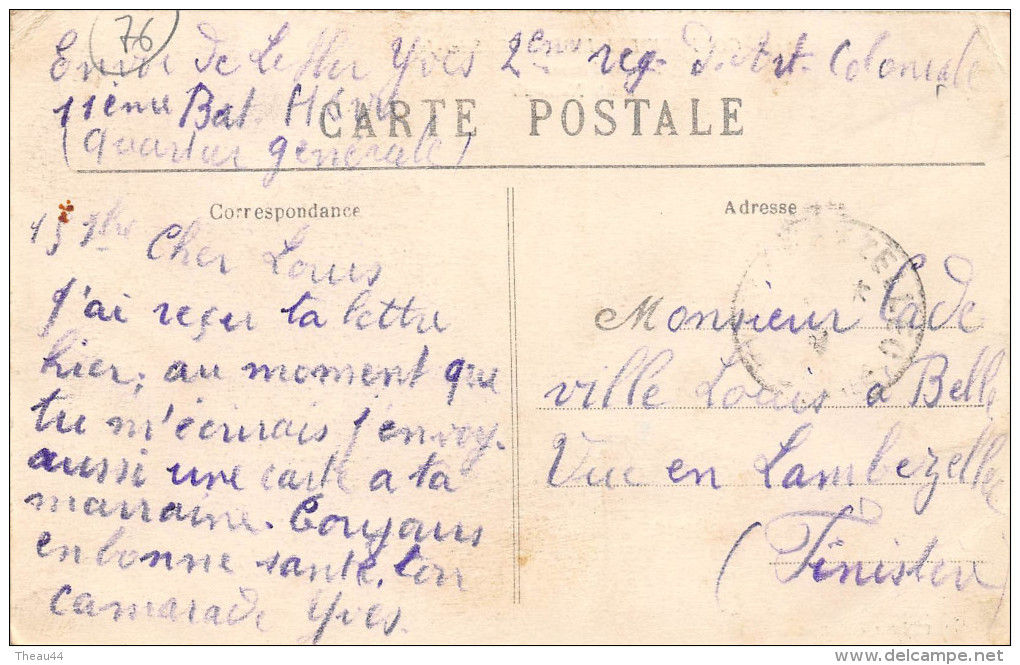 (76)
Envoi de Le Her Yves 2em reg. d'Art. Coloniale
11ème Bat.
(quartier générale)
CARTE POSTALE
Correspondance
Adresse
15
Cher Louis
j'ai reçu ta lettre
hier; au moment que
tu m'écrivais j'envoy.
aussi une carte a ta
marraine. Toujours
en bonne santé. ton
camarade Yves.
Monsieur Cade
ville Louis a Belle
Vue en Lambezellec
(Finistere)
Theau44
delcampe.net